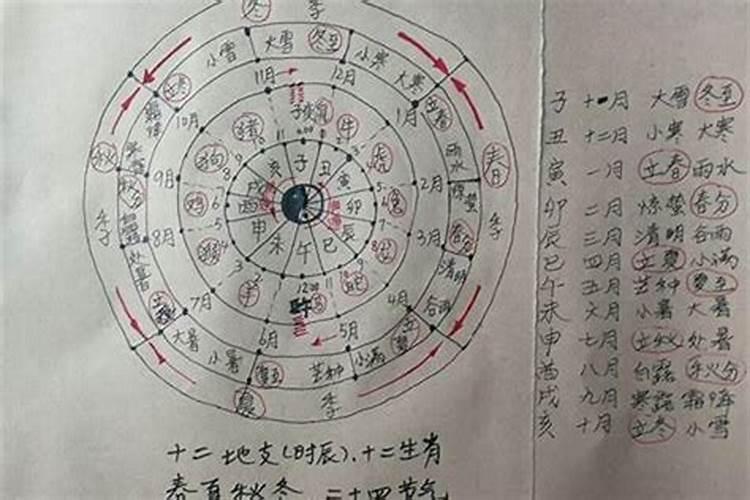 冬 季
小雪 大雪 冬至 小寒 大寒
立冬 11月 12月 1月 立春
10月 子 鼠 牛 雨水
秋 猪 虎 春
狗 亥 子 丑 寅
9月 戌 2月 惊蛰
秋分 鸡 酉 卯 兔
季 申 辰 季
8月 未 午 巳 3月 春分
处暑 猴 龙 清明
立秋 羊 12:00 蛇 谷雨
7月 午 马 4月
大暑 6月 5月 立夏
小暑 夏至 芒种 小满
夏 季
十二地支(时辰)、十二生肖
春夏秋冬 二十四节气
子 十一月 大雪 冬至
丑 十二月 小寒 大寒
寅 一月 立春 雨水
卯 二月 惊蛰 春分
辰 三月 清明 谷雨
巳 四月 立夏 小满
午 五月 芒种 夏至
未 六月 小暑 大暑
申 七月 立秋 处暑
酉 八月 白露 秋分
戌 九月 寒露 霜降
亥 十月 立冬 小雪